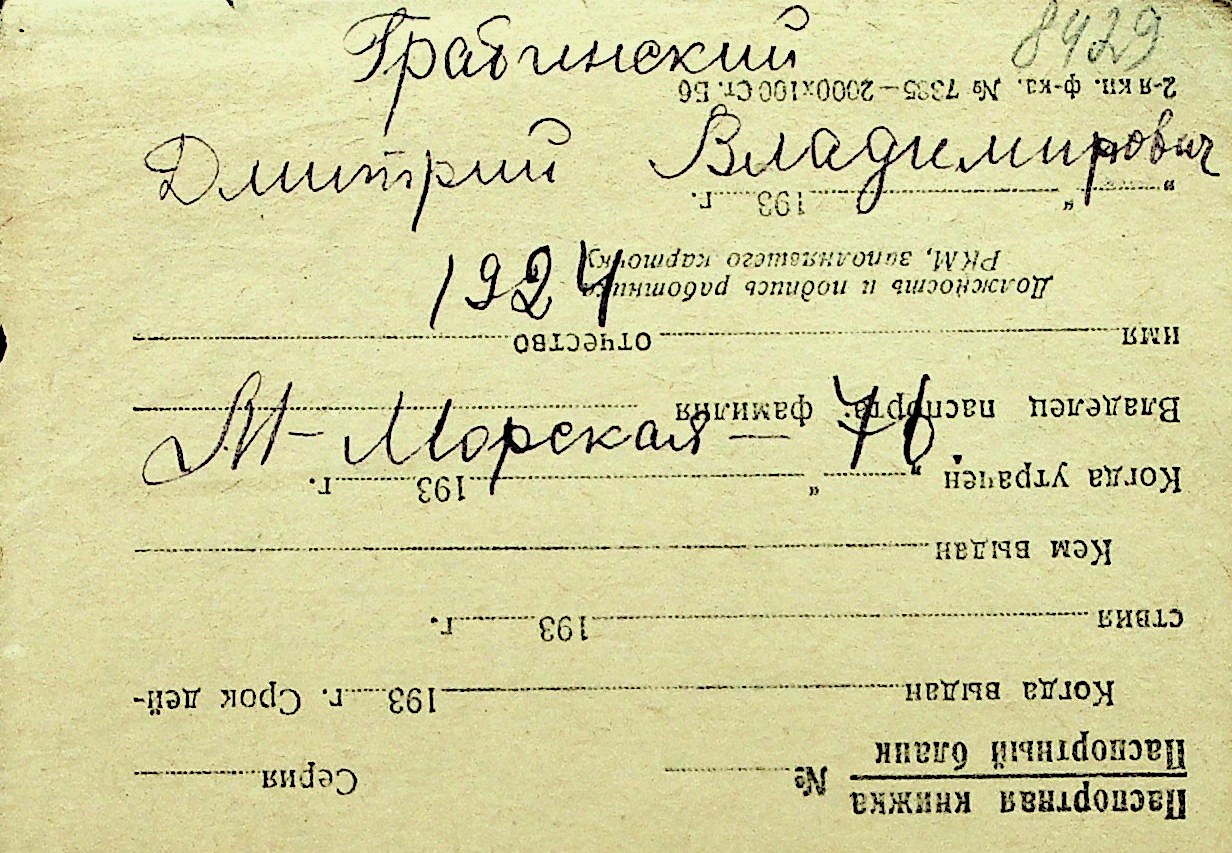 8429
Грабинский
Дмитрий Владимирович
1924
М-Морская — 76
Паспортная книжка
Паспортный бланк
№ Серия
Когда выдан 193 г. Срок дей-
ствия 193 г.
Кем выдан
Когда утрачен „ “ 193 г.
Владелец паспорта: фамилия
имя отчество
Должность и подпись работника
РКМ, заполнявшего карточку
„ “ 193 г.
2-я кн. ф-ка. № 7385—2000х100 Ст. Б6